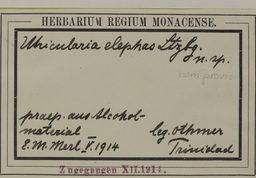 HERBARIUM REGIUM MONACENSE.
Utricularia elephas Ltzbg.
n. sp.
praep. aus Alcohol-
material
E. M. Merl V. 1914
leg. Othmer
Trinidad
Zugegangen XII.1914.